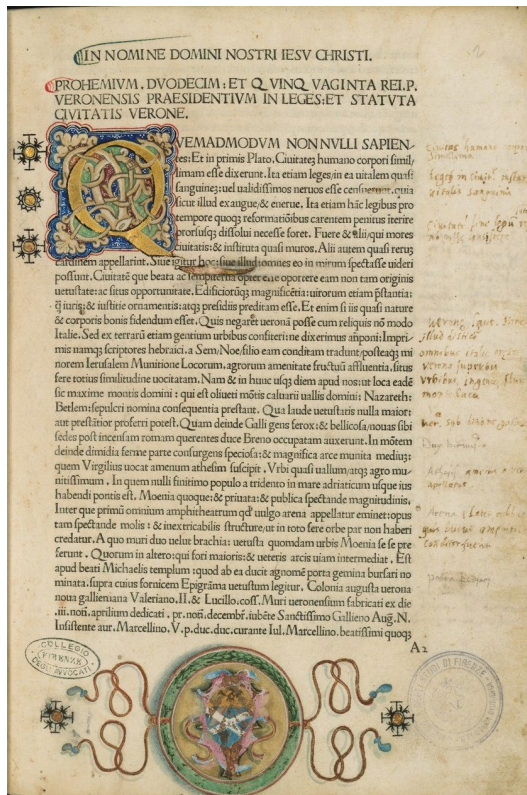 IN NOMINE DOMINI NOSTRI IESV CHRISTI.
PROHEMIVM. DVODECIM: ET QVINQVAGINTA REI.P.
VERONENSIS PRAESIDENTIVM IN LEGES: ET STATVTA
CIVITATIS VERONE.
QVEMADMODVM NONNVLLI SAPIEN/
es: Et in primis Plato. Ciuitatez humano corpori simil/
limam esse dixerunt. Ita etiam leges/in ea uitalem quasi
sanguinez: uel ualidissimos neruos esse censuerunt. quia
sicut illud exangue/& enerue. Ita etiam hãc legibus pro
tempore quoqz reformatiõibus carentem penitus iterire
prorsusqz dissolui necesse foret. Fuere & alii/qui mores
ciuitatis: & instituta quasi muros. Alii autem quasi reruz
cardinem appellarint. Siue igitur hoc: siue illud: omnes eo in mirum spectasse uideri
possunt. Ciuitatẽ que beata ac oportere eam non tam originis
uetustate: ac situs opportunitate. Edificiorũqz magnificẽtia: uirorum etiam p̃stantia:
q̃ iuris: & iustitie ornamentis: atqz presidiis preditam esse. Et enim si iis quasi nature
& corporis bonis fidendum esset. Quis negaret ueronã posse cum reliquis nõ modo
Italie. Sed ex terrarũ etiam gentium urbibus confiteri: ne dixerimus ãponi: Impri/
mis namqz scriptores hebraici. a Sem/Noe/filio eam conditam tradunt/posteaqz mi
norem Ierusalem Munitione Locorum, agrorum amenitate fructuũ affluentia. situs
fere totius similitudine uocitatam. Nam & in hunc usqz diem apud nos: ut loca eadẽ
sic maxime montis domini: qui est oliueti mõtis caluarii uallis domini: Nazareth:
Betlem: sepulcri nomina consequentia prestant. Qua laude uetustatis nulla maior:
aut prestãtior proferri potest. Quam deinde Galli gens ferox: & bellicosa/nouas sibi
sedes post incensam romam querentes duce Breno occupatam auxerunt. In mõtem
deinde dimidia ferme parte consurgens speciosa: & magnifica arce munita medius:
quem Virgilius uocat amenum athesim suscipit. Vrbi quasi uallum/atqz agro mu/
nitissimum. In quem nulli finitimo populo a tridento in mare adriaticum usque ius
habendi pontis est. Moenia quoque: & priuata: & publica spectande magnitudinis.
Inter que primũ omnium amphitheatrum qd' uulgo arena appellatur eminet: opus
tam spectande molis: & inextricabilis structure/ut in toto fere orbe par non haberi
credatur. A quo muri duo uelut brachia: uetusta quomdam urbis Moenia se se pre
serunt. Quorum in altero: qui fori maioris: & ueteris arcis uiam intermediat. Est
apud beati Michaelis templum: quod ab ea ducit agnomẽ porta gemina bursari no
minata. supra cuius fornicem Epigrãma uetustum legitur. Colonia augusta uerona
noua gallieniana Valeriano. II. & Lucillo. coss. Muri ueronensium fabricati ex die
.iii. noñ. aprilium dedicati. pr. noñ. decembr̃. iubẽte Sanctissimo Gallieno Aug̃. N.
Insistente aur. Marcellino. V. p. duc. duc. curante Iul. Marcellino. beatissimi quoqz
A2
COLLEGIO
FIRENZE
DEGLI AVVOCATI
STUDI DI FIRENZE